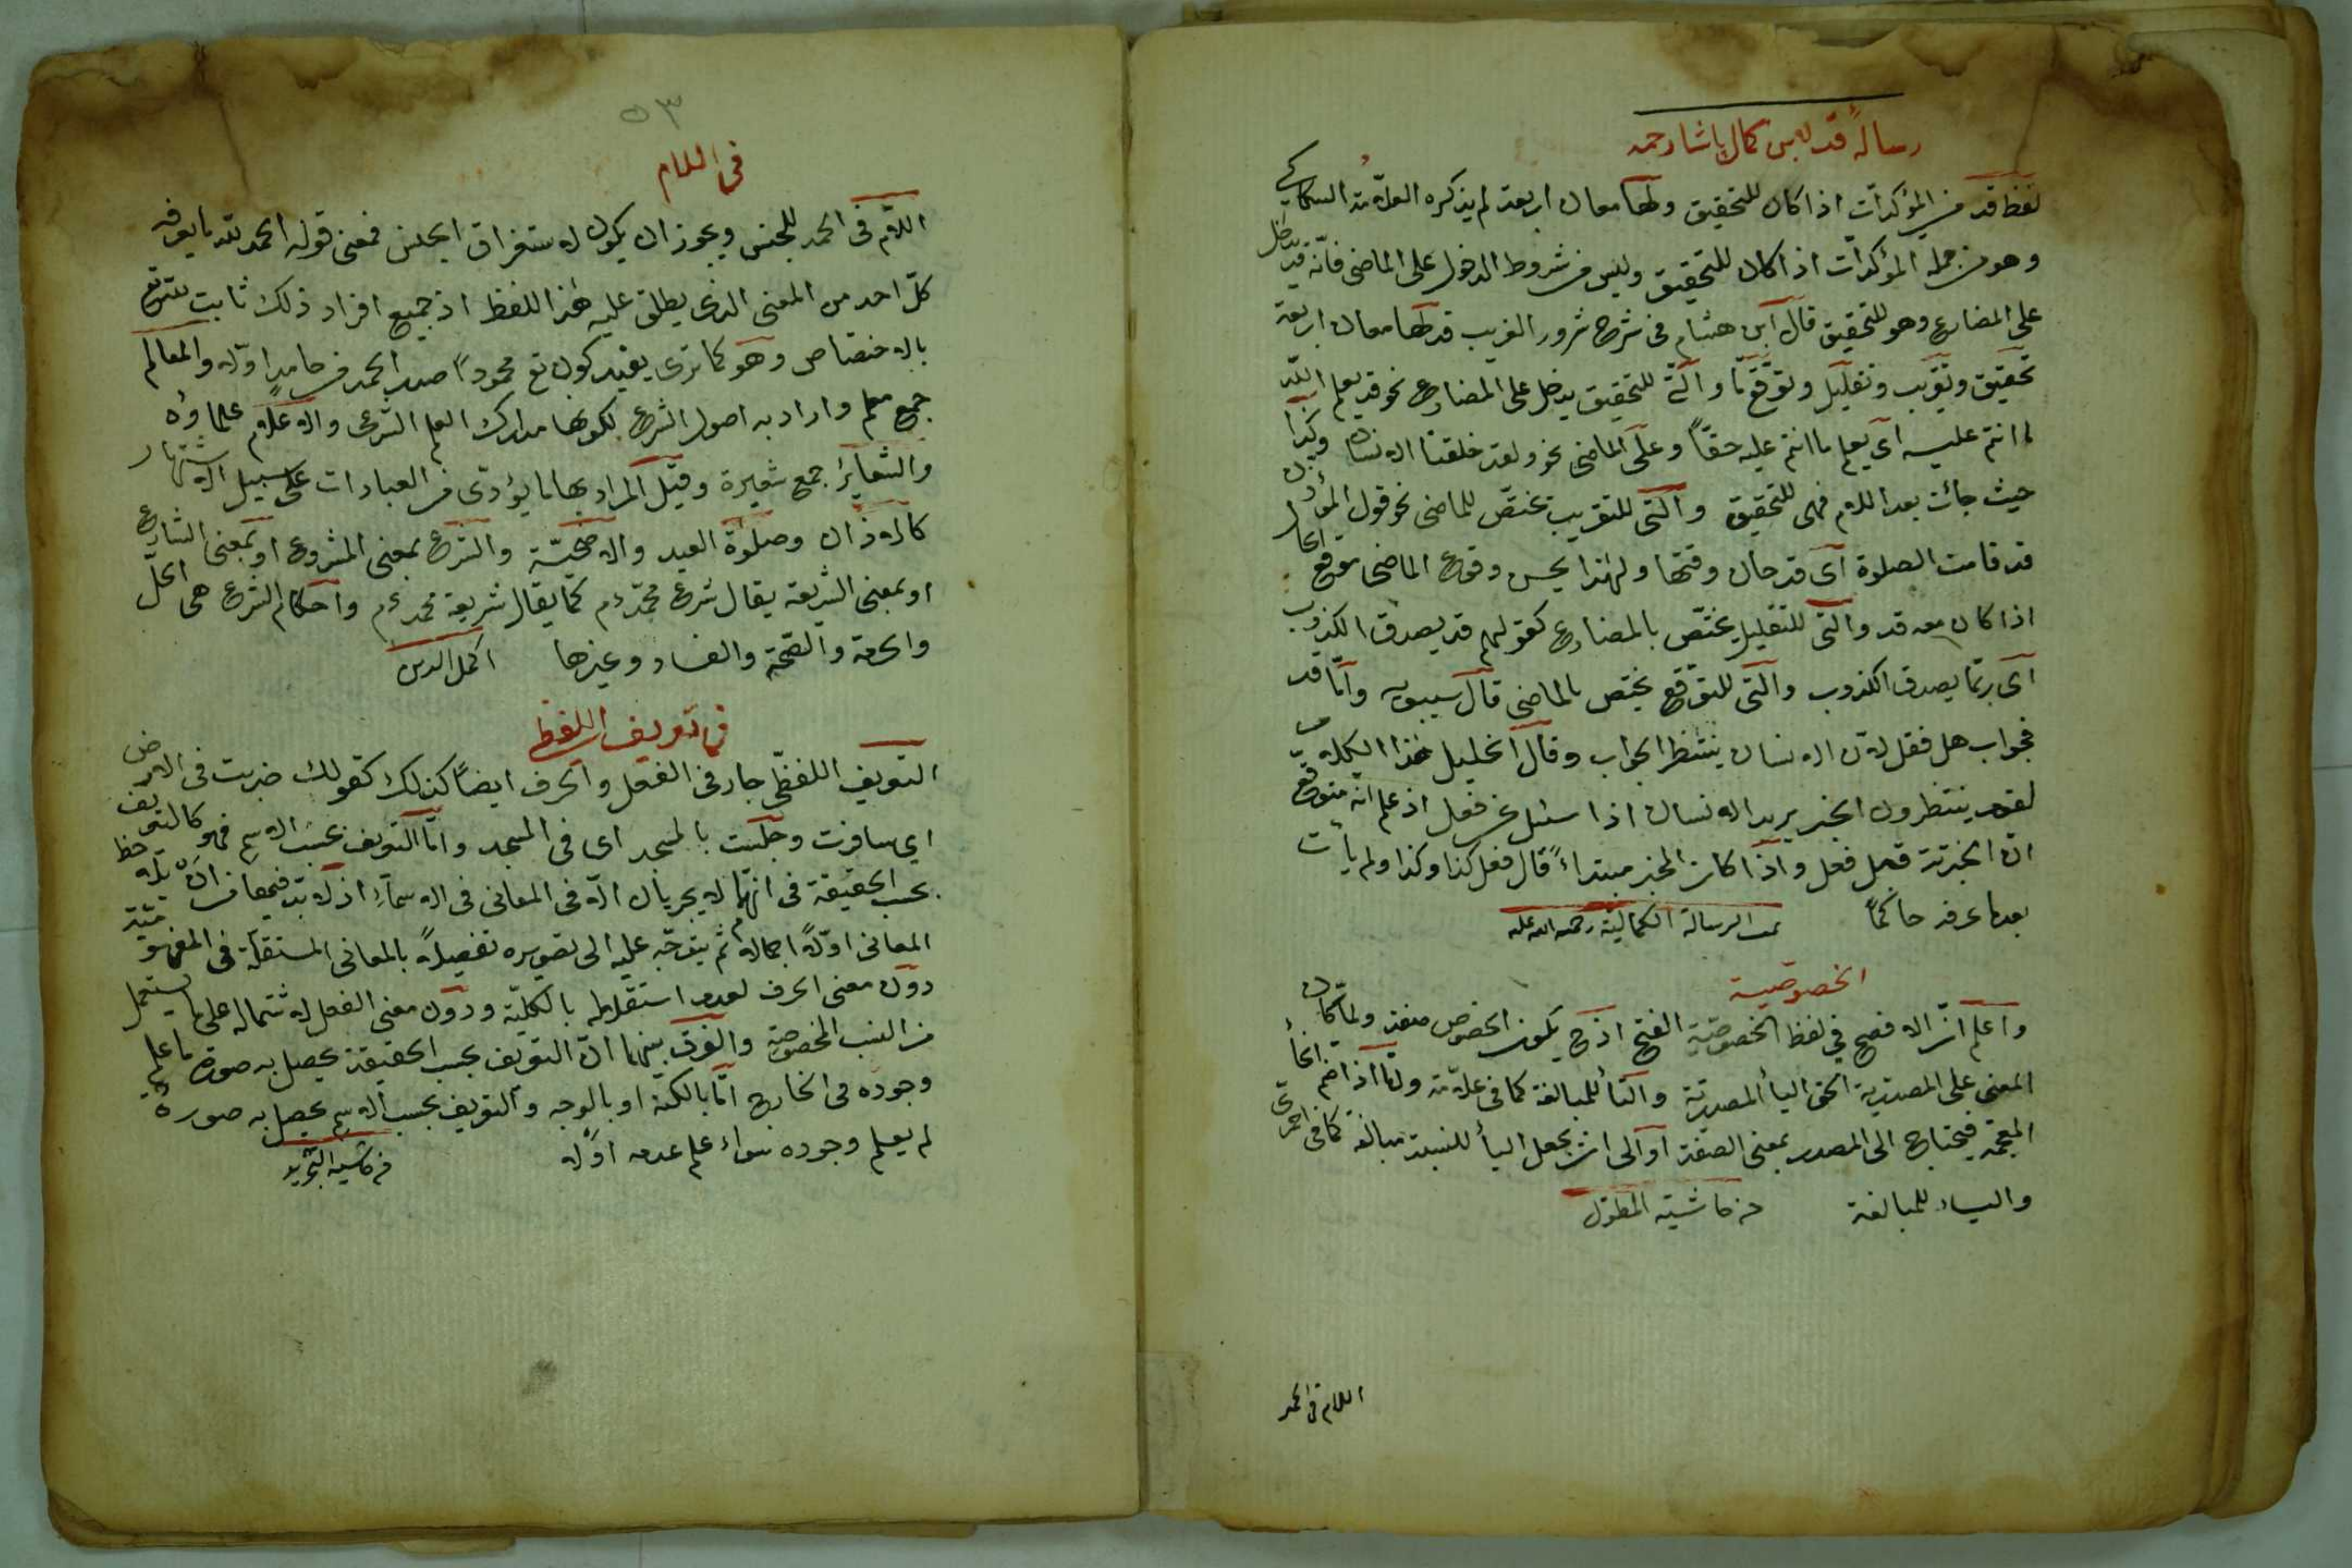 رسالة قد لابن كمال پاشا رحمه
لفظ قد من المؤكدات اذا كان للتحقيق ولها معان اربعة لم يذكره العلامة السكاكي
وهو من جملة المؤكدات اذا كان للتحقيق وليس من شروط الدخول على الماضى فانه قد يدخل
على المضارع وهو للتحقيق قال ابن هشام فى شرح شرور الغريب قد لها معان اربعة
تحقيق وتقريب وتقليل وتوقع والتى للتحقيق يدخل على المضارع نحو قد يعلم الله
ما انتم عليه اى يعلم ما انتم عليه حقاً وعلى الماضى نحو ولقد خلقنا الانسان وكذا
حيث جائت بعد اللام فهى للتحقيق والتى للتقريب تختص للماضى نحو قول المؤذن
قد قامت الصلوة اى قد حان وقتها ولهذا يحسن وقوع الماضى موقع الحال
اذا كان معه قد والتى للتقليل يختص بالمضارع كقولهم قد يصدق الكذوب
اى ربما يصدق الكذوب والتى للتوقع يختص بالماضى قال سيبويه واما قد
فجواب هل فعل لان الانسان ينتظر الجواب وقال الخليل هذا الكلام
لقوم ينتظرون الخبر يريد الانسان اذا سئل عن فعل اذ علم انه متوقع
ان الخبر قد فعل واذا كان المخبر مبتداءً قال فعل كذا وكذا ولم يأت
بعد ما عرفه حاكماً تمت الرسالة الكمالية رحمة الله عليه
الخصوصية
واعلم ان الافصح فى لفظ الخصوصية الفتح اذ ح يكون الخصوص صفة ولما كان
المعنى على المصدرية الحق اليأ المصدرية والتأ للمبالغة كما فى علامة ولما اذا ضم الخأ
المعجمة فيحتاج الى المصدر بمعنى الصفة او الى ان يجعل اليأ للنسبة مبالغة كما فى احمرى
والياء للمبالغة من حاشية المطول
اللام فى الحمد
٥٣
فى اللام
اللام فى الحمد للجنس ويجوز ان يكون لاستغراق الجنس فمعنى قوله الحمد لله ما يعرفه
كل احد من المعنى الذى يطلق عليه هذا اللفظ اذ جميع افراد ذلك ثابت لله تع
بالاختصاص وهو كما ترى يفيد كون تع محموداً صدر الحمد من حامد اولا والمعالم
جمع معلم واراد به اصول الشرع لكونها مدارك العلم الشرعى والاعلام علماؤه
والشعاير جمع شعيرة وقيل المراد بها ما يؤدى من العبادات على سبيل الاشتهار
كالاذان وصلوة العيد والاضحية والشرع بمعنى المشروع او بمعنى الشارع
او بمعنى الشريعة يقال شرع محمد ءم كما يقال شريعة محمد ءم واحكام الشرع هى الحل
والحرمة والصحة والفساد وغيرها اكمل الدين
فى تعريف اللفظى
التعريف اللفظى جار فى الفعل والحرف ايضاً كذلك كقولك ضربت فى الارض
اى سافرت وجلست بالمسجد اى فى المسجد واما التعريف بحسب الاسم فهو كالتعريف
بحسب الحقيقة فى انهما لا يجريان الا فى المعانى فى الاسماء اذ لا بد فيهما من ان يلاحظ
المعانى اولاً اجمالا ثم يتوجه عليه الى تصويره تفصيلاً بالمعانى المستقلة فى المفهومية
دون معنى الحرف لعدم استقلاله بالكلية ودون معنى الفعل لاشتماله على ما يستعمل
من النسب المخصوصة والفرق بينهما ان التعريف بحسب الحقيقة يحصل به صورة ما علم
وجوده فى الخارج اما بالكنه او بالوجه والتعريف بحسب الاسم يحصل به صورة
لم يعلم وجوده سواء علم عدمه اولا من حاشية التجريد